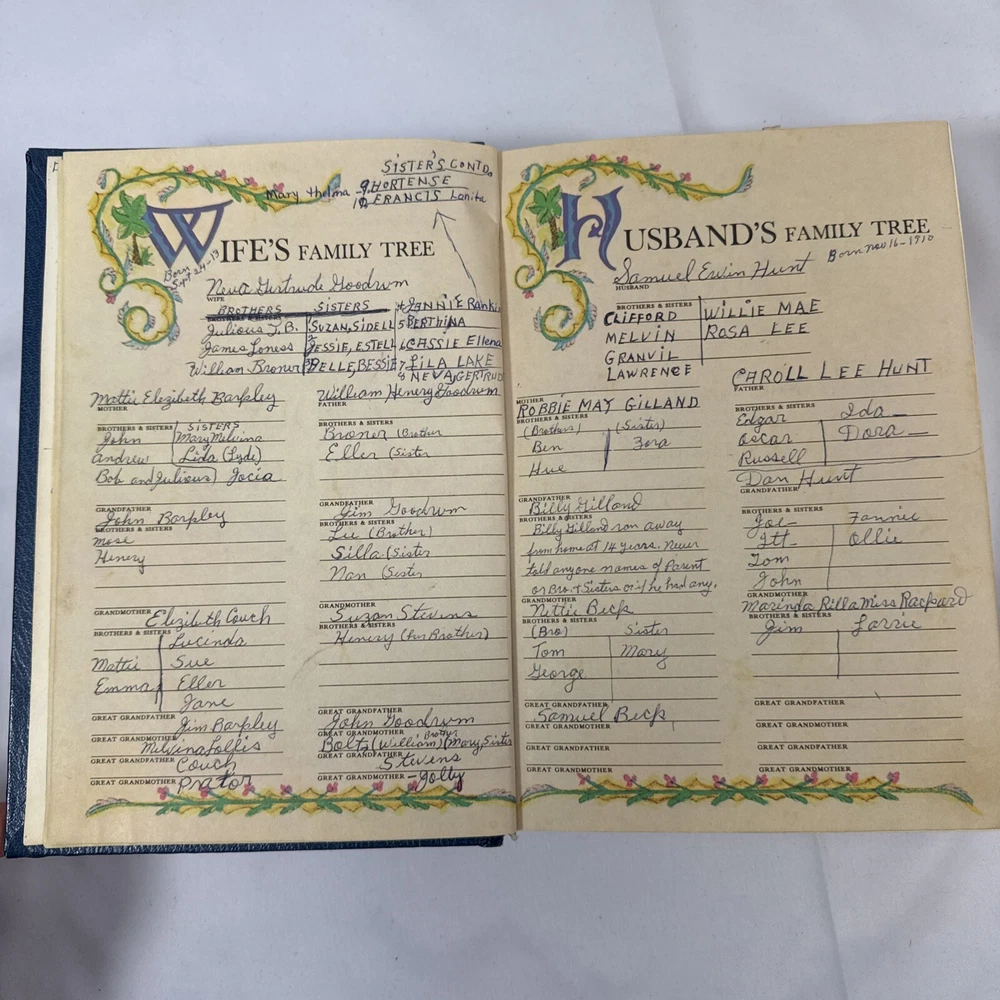 SISTER'S CONTD.
Mary Thelma 9, HORTENSE
10 FRANCIS Lonita
WIFE'S FAMILY TREE
Born Sept 24-13
Neva Gertrude Goodrum
WIFE
BROTHERS SISTERS 4 JANNIE Rankin
BROTHERS & SISTERS
Julious T.B. SUZAN, SIDELL 5 BERTHINA
James Loness 2 JESSIE, ESTELL 6 CASSIE Ellena
William Broner 3 BELLE, BESSIE 7 LILA LAKE
8 NEVA, GERTRUD
Mattie Elezibeth Barpley
MOTHER
BROTHERS & SISTERS SISTERS
John Mary Melvina
Andrew Lida (Lyde)
Bob and Julious) Jocia
GRANDFATHER
John Barpley
BROTHERS & SISTERS
Mose
Henery
GRANDMOTHER Elizibeth Couch
BROTHERS & SISTERS Lucinda
Mattie Sue
Emma Eller
Jane
GREAT GRANDFATHER Jim Barpley
GREAT GRANDMOTHER Melvina Follis
GREAT GRANDFATHER Couch
GREAT GRANDMOTHER Prator
William Henery Goodrum
FATHER
BROTHERS & SISTERS
Broner (Brother
Eller (Sister
GRANDFATHER
Jim Goodrum
BROTHERS & SISTERS
Lee (Brother)
Silla (Sister
Nan (Sister
GRANDMOTHER
Suzan Stevens
BROTHERS & SISTERS
Henery (her Brother)
GREAT GRANDFATHER
John Goodrum
GREAT GRANDMOTHER Brother
Bolts (William) (Mary, Sister
GREAT GRANDFATHER
Stevens
GREAT GRANDMOTHER - Jolly
HUSBAND'S FAMILY TREE
Born Nov 16-1910
Samuel Erwin Hunt
HUSBAND
BROTHERS & SISTERS
CLIFFORD WILLIE MAE
MELVIN ROSA LEE
GRANVIL
LAWRENCE
MOTHER
ROBBIE MAY GILLAND
BROTHERS & SISTERS
(Brothers) (Sister)
Ben Zora
Hue
GRANDFATHER
Billy Gilland
BROTHERS & SISTERS
Billy Gilland ran away
from home at 14 years. Never
told anyone names of Parent
or Bro. & Sisters or if he had any.
GRANDMOTHER
Nettie Beck
BROTHERS & SISTERS
(Bro) Sister
Tom Mary
George
GREAT GRANDFATHER
Samuel Beck
GREAT GRANDMOTHER
GREAT GRANDFATHER
GREAT GRANDMOTHER
CAROLL LEE HUNT
FATHER
BROTHERS & SISTERS
Edgar Ida
Oscar Dora
Russell
Dan Hunt
GRANDFATHER
BROTHERS & SISTERS
Joe Fannie
Itt Ollie
Tom
John
GRANDMOTHER
Marinda Rilla Miss Rackard
BROTHERS & SISTERS
Jim Larrie
GREAT GRANDFATHER
GREAT GRANDMOTHER
GREAT GRANDFATHER
GREAT GRANDMOTHER